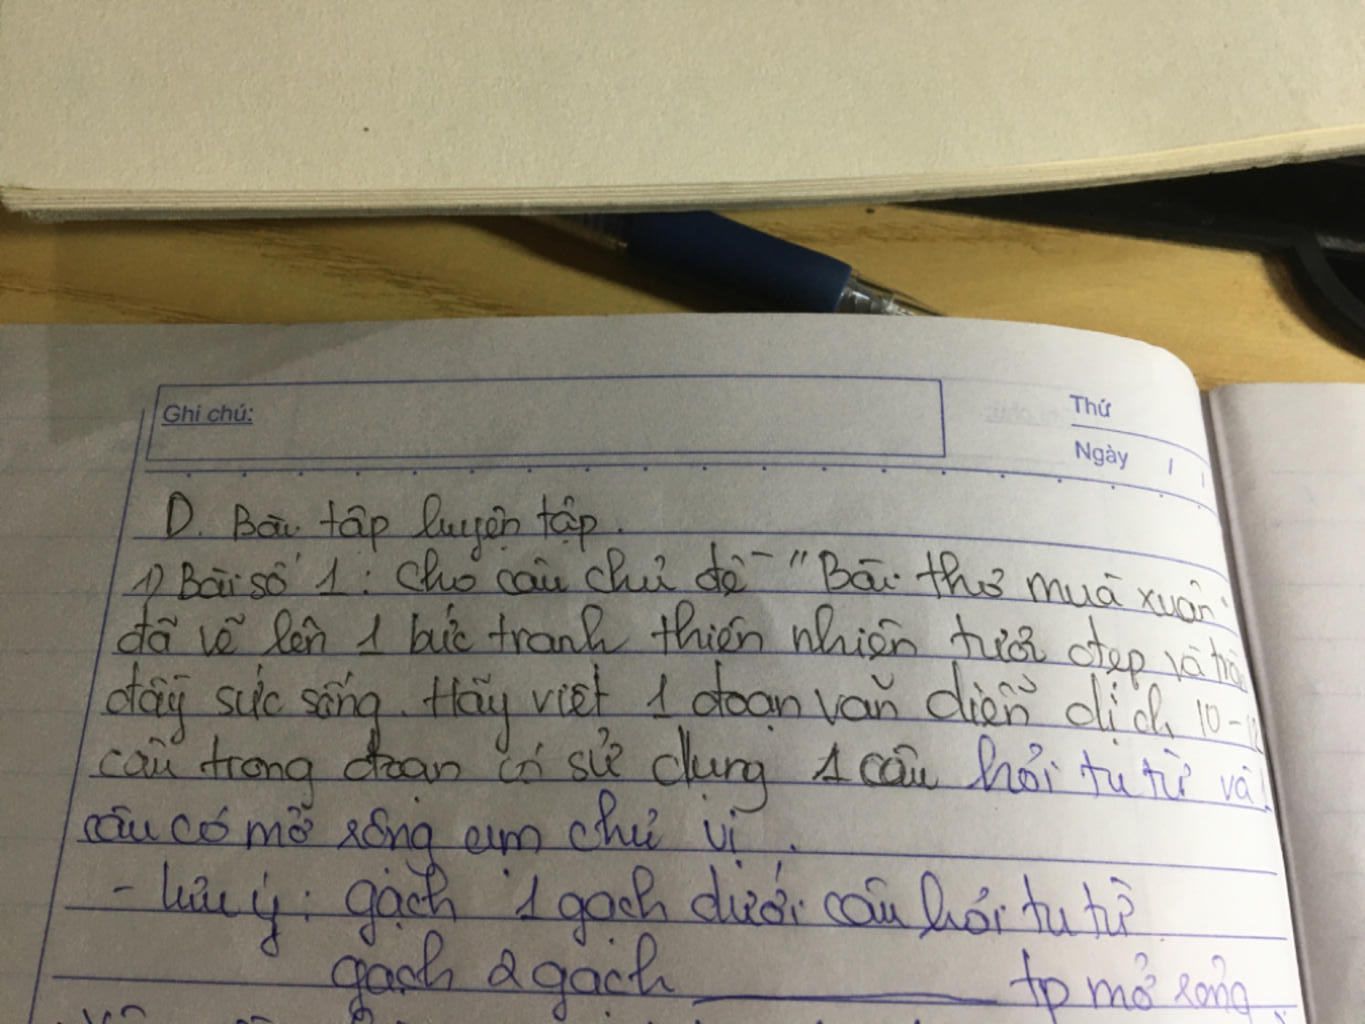 Ghi chú:
Thứ
Ngày
D. Bài tập luyện tập.
1) Bài số 1: Cho câu chủ đề "Bài thơ mùa xuân
đã vẽ lên 1 bức tranh thiên nhiên tươi đẹp và
đầy sức sống. Hãy viết 1 đoạn văn diễn dịch 10-12
câu trong đoạn có sử dụng 1 câu hỏi tu từ và
câu có mở rộng cụm chủ vị.
- Lưu ý: gạch 1 gạch dưới câu hỏi tu từ
gạch 2 gạch tp mở rộng